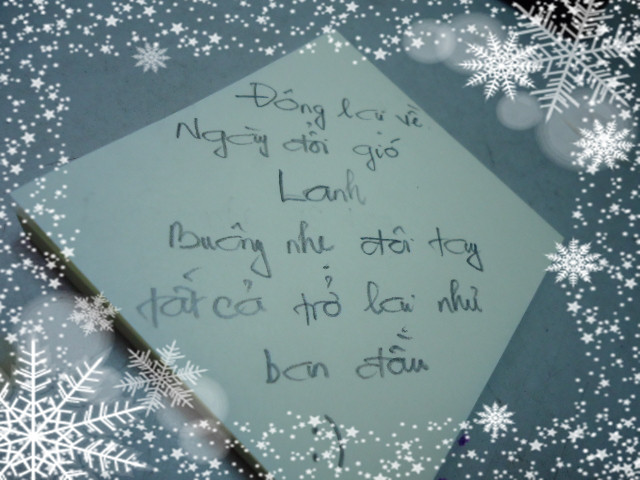 Đông lại về
Ngày đổi gió
Lạnh
Buông nhẹ đôi tay
tất cả trở lại như
ban đầu
:)